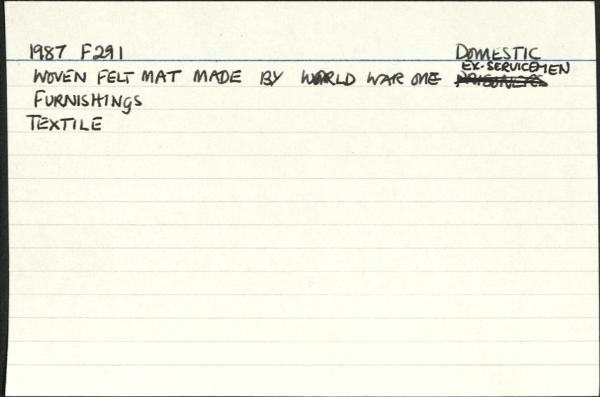 1987 F291 DOMESTIC
WOVEN FELT MAT MADE BY WORLD WAR ONE EX-SERVICEMEN PRISONERS
FURNISHINGS
TEXTILE